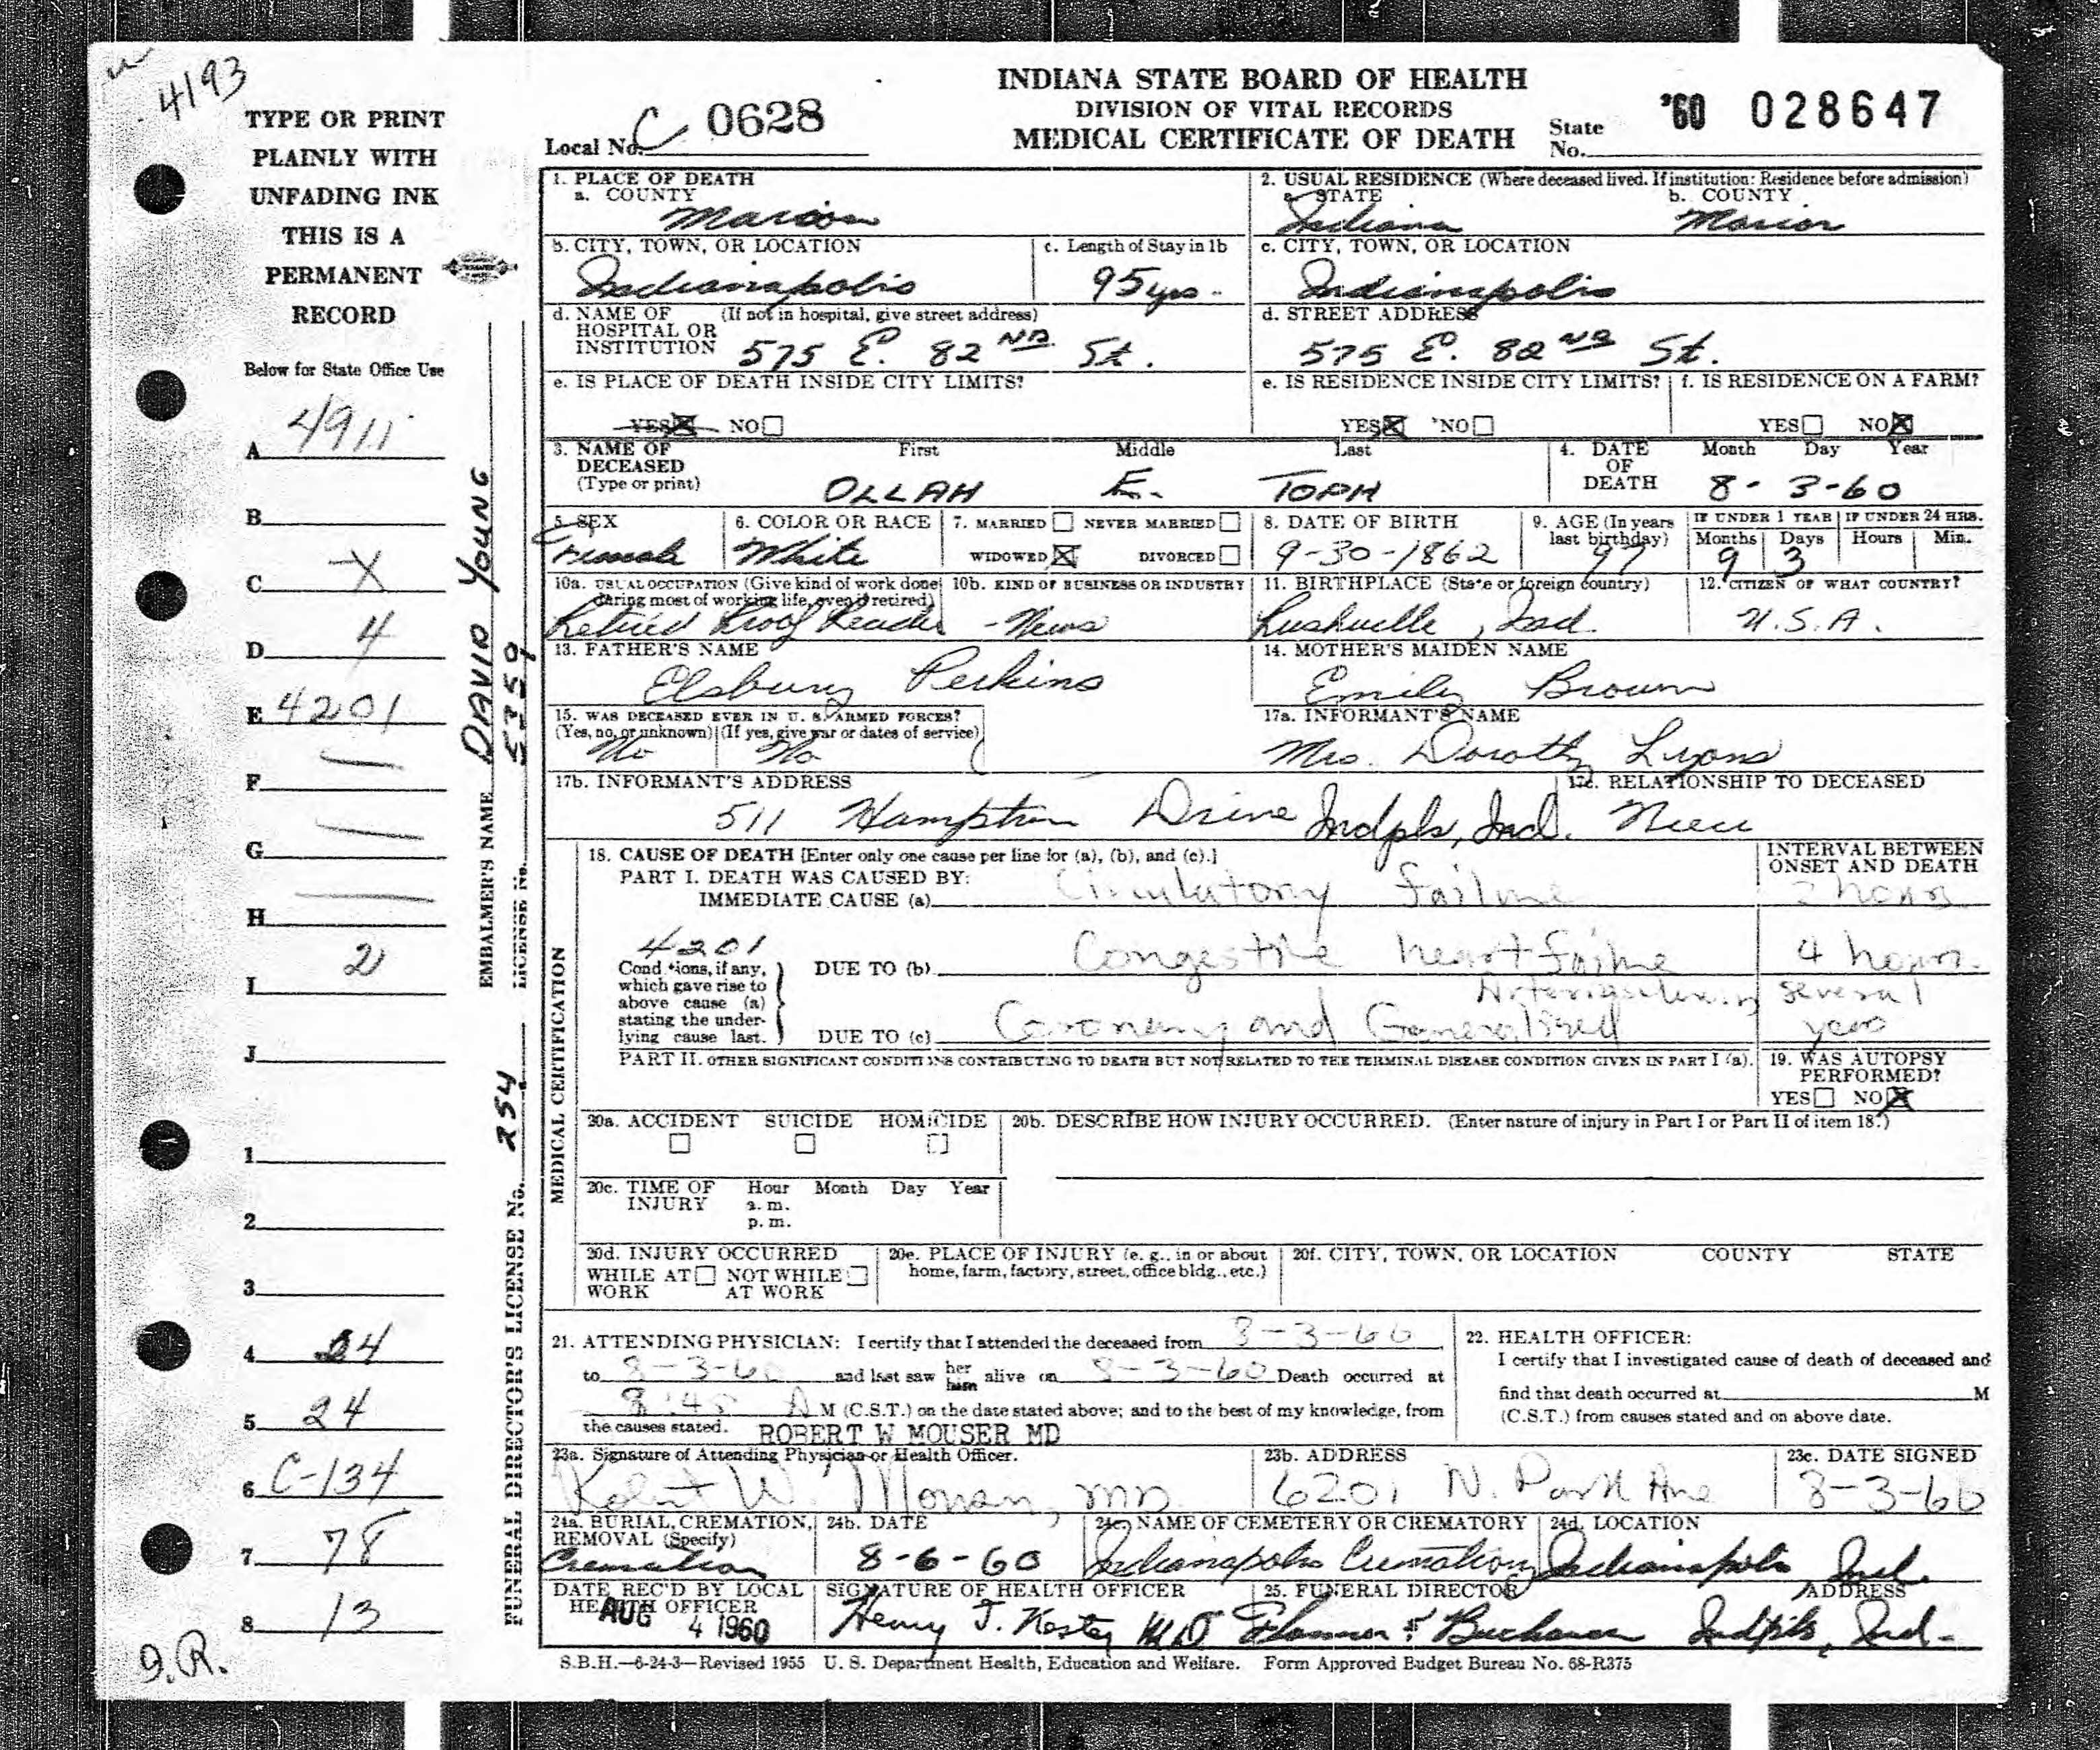 4193
TYPE OR PRINT
PLAINLY WITH
UNFADING INK
THIS IS A
PERMANENT
RECORD
Below for State Office Use
A 4911
B
C X
D 4
E 4201
F —
G —
H —
I 2
J
1
2
3
4 24
5 24
6 C-134
7 78
8 13
J.R.
EMBALMER'S NAME DAVID YOUNG
LICENSE No. 5359
FUNERAL DIRECTOR'S LICENSE No. 254
INDIANA STATE BOARD OF HEALTH
DIVISION OF VITAL RECORDS
MEDICAL CERTIFICATE OF DEATH
Local No. C 0628
State No. '60 028647
1. PLACE OF DEATH
a. COUNTY
Marion
2. USUAL RESIDENCE (Where deceased lived. If institution: Residence before admission)
a. STATE b. COUNTY
Indiana Marion
b. CITY, TOWN, OR LOCATION c. Length of Stay in 1b
Indianapolis 95 yrs.
c. CITY, TOWN, OR LOCATION
Indianapolis
d. NAME OF (If not in hospital, give street address)
HOSPITAL OR
INSTITUTION 575 E. 82ND St.
d. STREET ADDRESS
575 E. 82ND St.
e. IS PLACE OF DEATH INSIDE CITY LIMITS?
YES ☒ NO ☐
e. IS RESIDENCE INSIDE CITY LIMITS? f. IS RESIDENCE ON A FARM?
YES ☒ NO ☐ YES ☐ NO ☒
3. NAME OF DECEASED (Type or print) First Middle Last
OLLAH E. TOPH
4. DATE OF DEATH Month Day Year
8-3-60
5. SEX
Female
6. COLOR OR RACE
White
7. MARRIED ☐ NEVER MARRIED ☐
WIDOWED ☒ DIVORCED ☐
8. DATE OF BIRTH
9-30-1862
9. AGE (In years last birthday)
97
IF UNDER 1 YEAR IF UNDER 24 HRS.
Months Days Hours Min.
9 3
10a. USUAL OCCUPATION (Give kind of work done during most of working life, even if retired)
Retired Proof Reader
10b. KIND OF BUSINESS OR INDUSTRY
- News
11. BIRTHPLACE (State or foreign country)
Rushville, Ind.
12. CITIZEN OF WHAT COUNTRY?
U.S.A.
13. FATHER'S NAME
Elsbury Perkins
14. MOTHER'S MAIDEN NAME
Emily Brown
15. WAS DECEASED EVER IN U. S. ARMED FORCES?
(Yes, no, or unknown) (If yes, give war or dates of service)
No No
17a. INFORMANT'S NAME
Mrs. Dorothy Lyons
17b. INFORMANT'S ADDRESS
511 Hampton Drive Indpls, Ind.
17c. RELATIONSHIP TO DECEASED
Niece
MEDICAL CERTIFICATION
18. CAUSE OF DEATH [Enter only one cause per line for (a), (b), and (c).]
INTERVAL BETWEEN
ONSET AND DEATH
PART I. DEATH WAS CAUSED BY:
IMMEDIATE CAUSE (a) Circulatory failure hours
4201
Conditions, if any,
which gave rise to
above cause (a)
stating the under-
lying cause last.
DUE TO (b) Congestive heart failure 4 hours.
DUE TO (c) Coronary and Generalized Arteriosclerosis several years
PART II. OTHER SIGNIFICANT CONDITIONS CONTRIBUTING TO DEATH BUT NOT RELATED TO THE TERMINAL DISEASE CONDITION GIVEN IN PART I (a).
19. WAS AUTOPSY
PERFORMED?
YES ☐ NO ☒
20a. ACCIDENT SUICIDE HOMICIDE
☐ ☐ ☐
20b. DESCRIBE HOW INJURY OCCURRED. (Enter nature of injury in Part I or Part II of item 18.)
20c. TIME OF INJURY Hour Month Day Year
a. m.
p. m.
20d. INJURY OCCURRED
WHILE AT WORK ☐ NOT WHILE AT WORK ☐
20e. PLACE OF INJURY (e. g., in or about
home, farm, factory, street, office bldg., etc.)
20f. CITY, TOWN, OR LOCATION COUNTY STATE
21. ATTENDING PHYSICIAN: I certify that I attended the deceased from 8-3-60
to 8-3-60 and last saw her him alive on 8-3-60 Death occurred at
8:45 A M (C.S.T.) on the date stated above; and to the best of my knowledge, from
the causes stated. ROBERT W MOUSER MD
22. HEALTH OFFICER:
I certify that I investigated cause of death of deceased and
find that death occurred at M
(C.S.T.) from causes stated and on above date.
23a. Signature of Attending Physician or Health Officer.
Robert W. Mouser, MD.
23b. ADDRESS
6201 N. Park Ave
23c. DATE SIGNED
8-3-60
24a. BURIAL, CREMATION, REMOVAL (Specify)
Cremation
24b. DATE
8-6-60
24c. NAME OF CEMETERY OR CREMATORY
Indianapolis Cremation
24d. LOCATION
Indianapolis, Ind.
DATE REC'D BY LOCAL
HEALTH OFFICER
AUG 4 1960
SIGNATURE OF HEALTH OFFICER
Henry J. Kester MD
25. FUNERAL DIRECTOR ADDRESS
Flanner & Buchanan Indpls, Ind.
S.B.H.—6-24-3—Revised 1955 U. S. Department Health, Education and Welfare. Form Approved Budget Bureau No. 68-R375